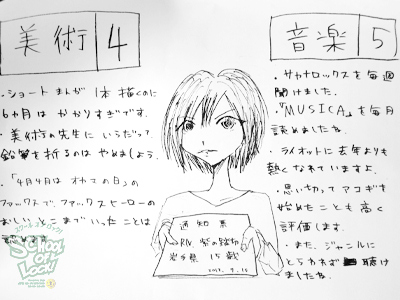 美術 4
・ショートまんが 1本描くのに
6ヵ月は かかりすぎです。
・美術の先生に いらだって
鉛筆を折るのは やめましょう。
・「4月4日は オカマの日」の
ファックスで、ファックスヒーローの
おしい とこまで いったことは
認めます。
音楽 5
・サカナロックスを毎週
聞けました。
・『MUSICA』を毎月
読めましたね。
・ライオットに去年よりも
熱くなれていますよ。
・思い切ってアコギを
始めたことも高く
評価します。
・また、ジャンルに
とらわれず 聴け
ましたね。
通知票
RN 紫の踏切
岩手県 15歳
SCHOOL OF LOCK!